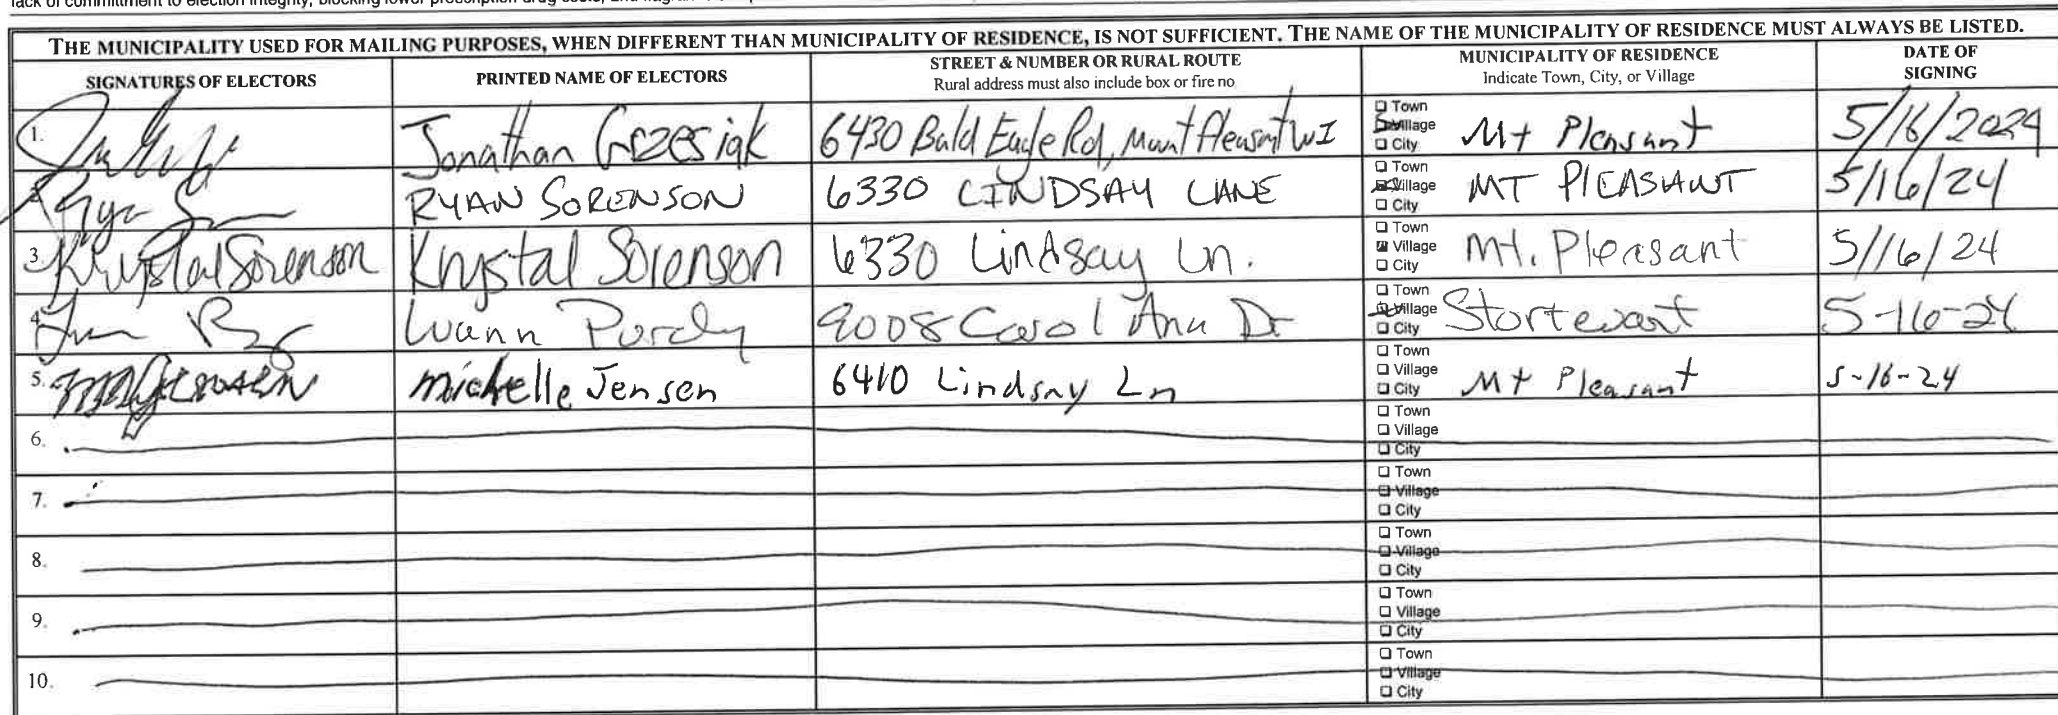 THE MUNICIPALITY USED FOR MAILING PURPOSES, WHEN DIFFERENT THAN MUNICIPALITY OF RESIDENCE, IS NOT SUFFICIENT. THE NAME OF THE MUNICIPALITY OF RESIDENCE MUST ALWAYS BE LISTED.
SIGNATURES OF ELECTORS PRINTED NAME OF ELECTORS STREET & NUMBER OR RURAL ROUTE MUNICIPALITY OF RESIDENCE DATE OF SIGNING
Rural address must also include box or fire no Indicate Town, City, or Village
1. Jonathan Grzesiak 6430 Bald Eagle Rd, Mount Pleasant WI Town Village City Mt Pleasant 5/16/2024
2. Ryan RYAN SORENSON 6330 LINDSAY LANE Town Village City MT PLEASANT 5/16/24
3. Krystal Sorenson Krystal Sorenson 6330 Lindsay Ln. Town Village City Mt. Pleasant 5/16/24
4. Luann Purdy 9008 Carol Ann Dr Town Village City Stortevant 5-16-24
5. Michelle Jensen 6410 Lindsay Ln Town Village City Mt Pleasant 5-16-24
6. Town Village City
7. Town Village City
8. Town Village City
9. Town Village City
10. Town Village City